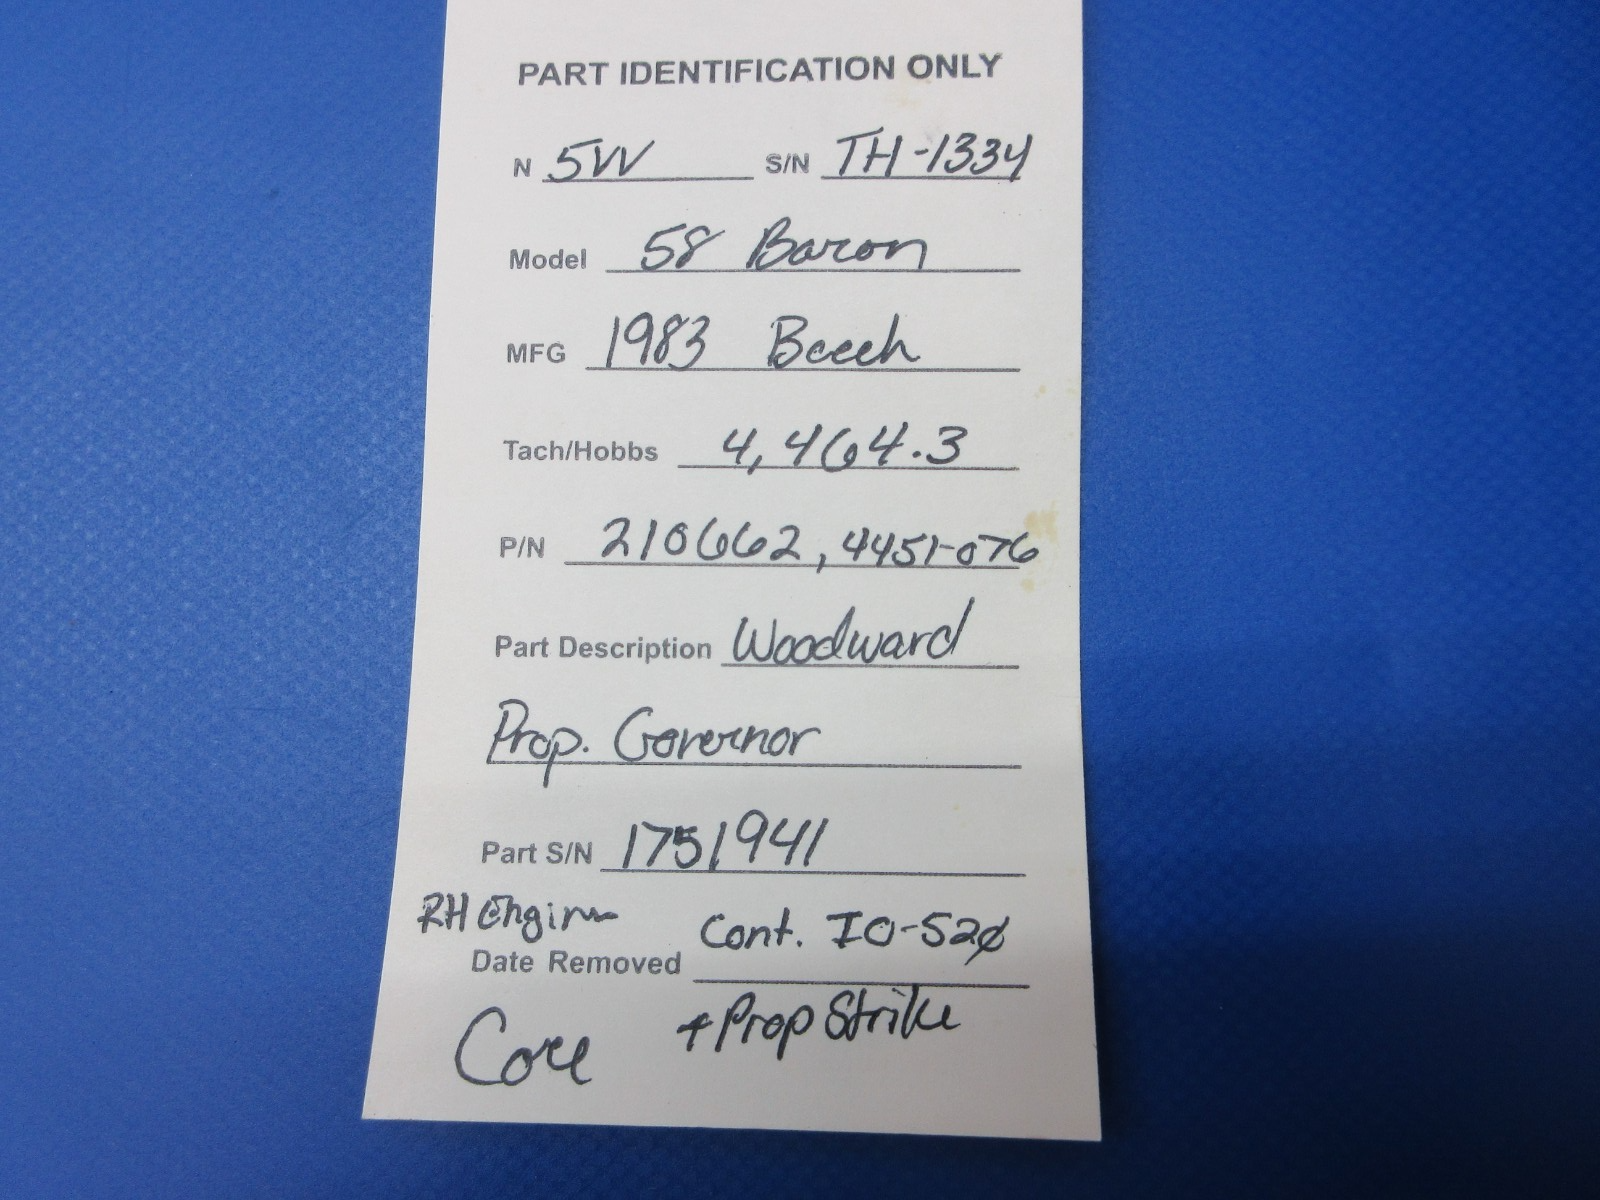 PART IDENTIFICATION ONLY
N 5W S/N TH-1334
Model 58 Baron
MFG 1983 Beech
Tach/Hobbs 4,464.3
P/N 210662, 4451-076
Part Description Woodward
Prop. Governor
Part S/N 1751941
RH Engine Cont. IO-520
Date Removed
Core + Prop Strike